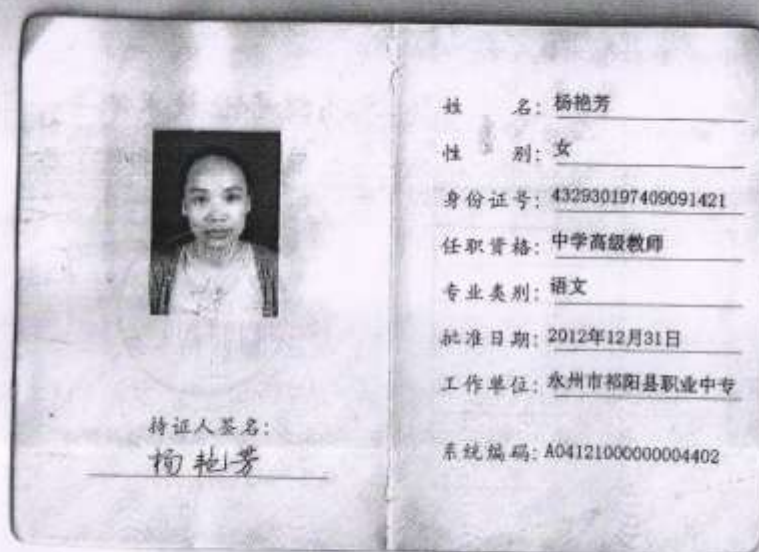 持证人签名:
杨艳芳
姓 名: 杨艳芳
性 别: 女
身份证号: 432930197409091421
任职资格: 中学高级教师
专业类别: 语文
批准日期: 2012年12月31日
工作单位: 永州市祁阳县职业中专
系统编码: A04121000000004402